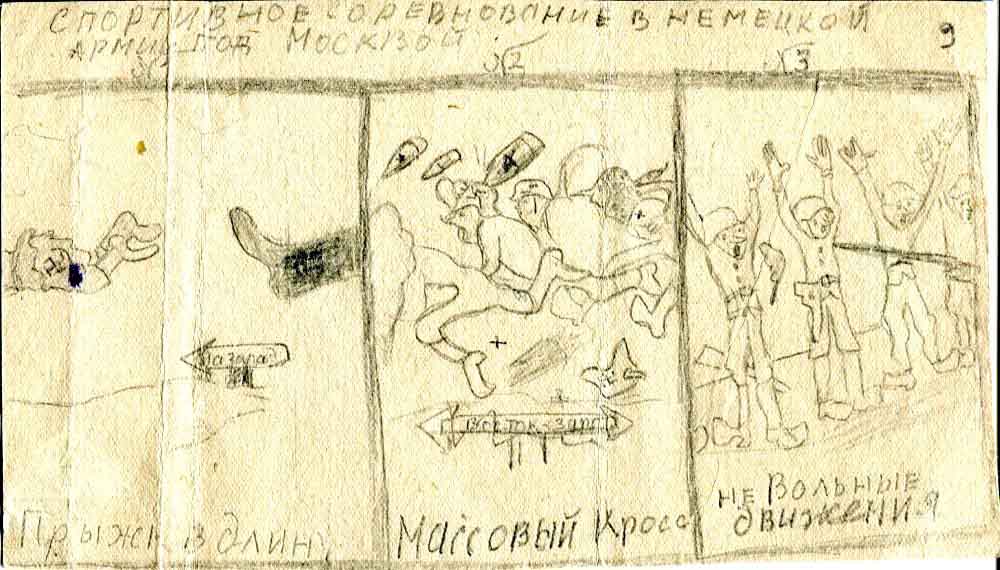 СПОРТИВНОЕ СОРЕВНОВАНИЕ В НЕМЕЦКОЙ
АРМИИ ПОД МОСКВОЙ
9
№2
№3
На запад
Восток-запад
Прыжк в длину
Массовый Кросс
не Вольные
движения